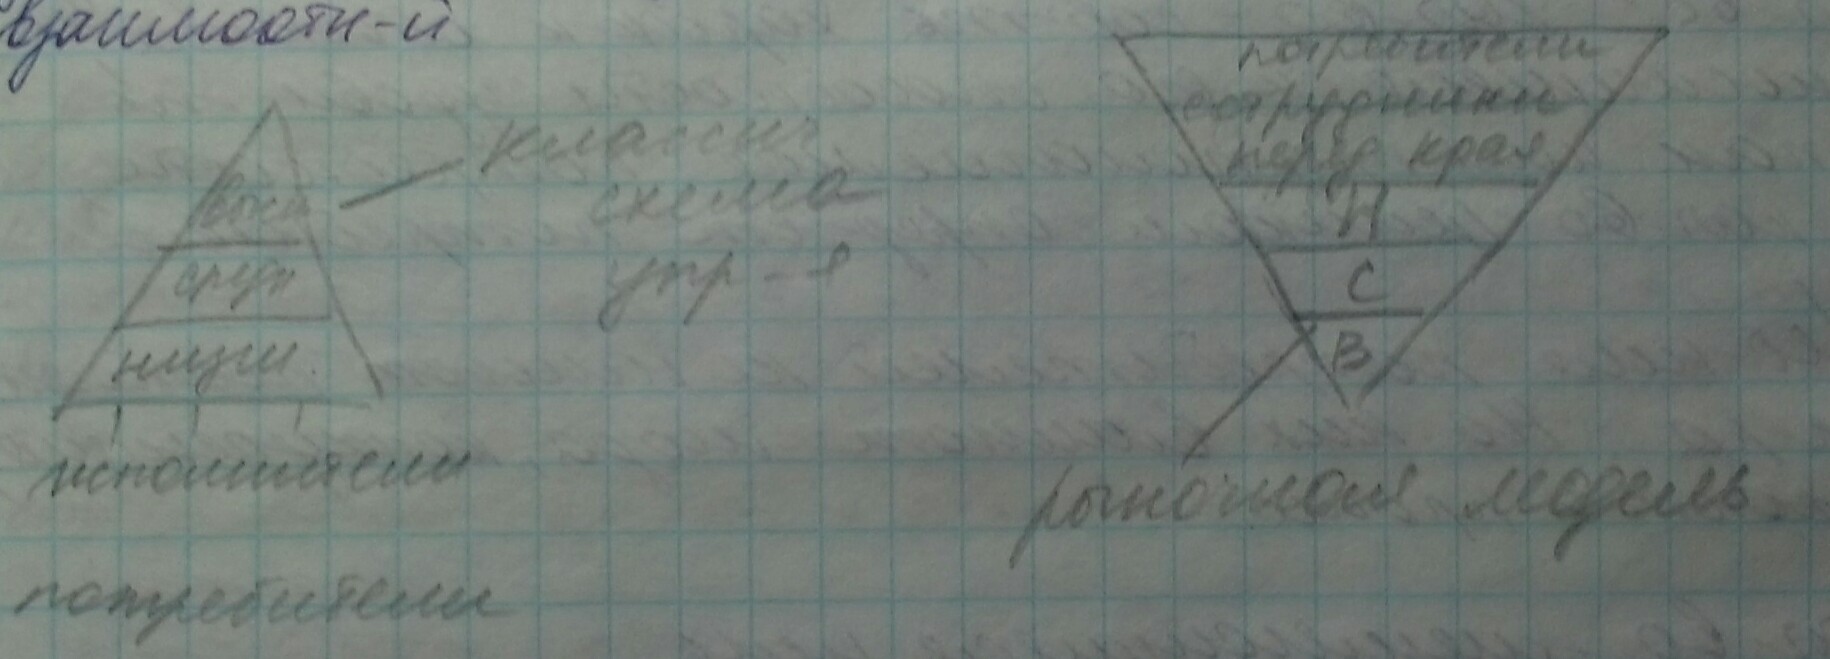 взаимости-й
высш
средн
низш.
исполнители
потребители
классич
схема
упр-я
потребители
сотрудники
перед края
Н
С
В
рыночная модель